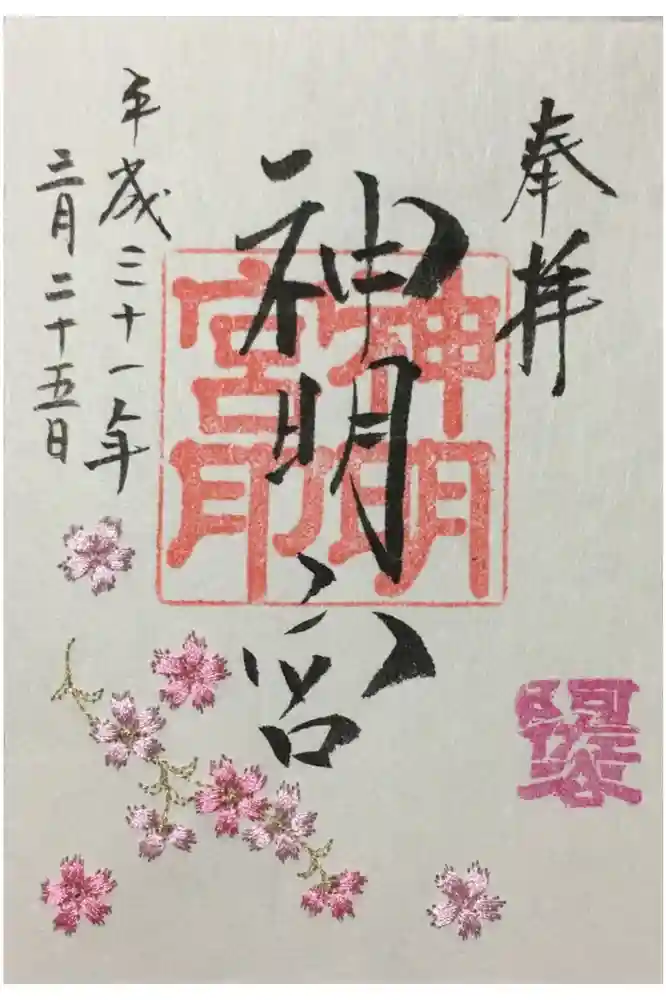 奉拝
神明宮
神明宮印
平成三十一年
三月二十五日